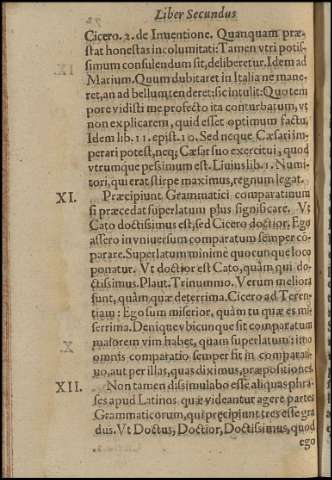 Liber Secundus
Cicero. 2. de Inuentione. Quanquam præ-
stat honestas incolumitati: Tamen vtri potis-
simum consulendum sit, deliberetur. Idem ad
Marium. Quum dubitaret in Italia ne mane-
ret, an ad bellum tenderet; sic intulit: Quo tem
pore vidisti me profecto ita conturbatum, vt
non explicarem, quid esset optimum factu.
Idem lib. 11. epist. 10. Sed neque Cæsari im-
perari potest, neq; Cæsar suo exercitui, quod
vtrumque pessimum est. Liuius lib. 1. Numi-
tori, qui erat stirpe maximus, regnum legat.
XI. Præcipiunt Grammatici comparatiuum
si præcedat superlatum plus significare. Vt
Cato doctissimus est, sed Cicero doctior, Ego
assero in vniuersum comparatum semper cō-
parare. Superlatum minime quocunque loco
ponatur. Vt doctior est Cato, quàm qui do-
ctissimus. Plaut. Trinummo. Verum meliora
sunt, quàm quæ deterrima. Cicero ad Teren-
tiam: Ego sum miserior, quàm tu quæ es mi-
serrima. Denique vbicunque sit comparatum
maiorem vim habet, quam superlatum: imo
omnis comparatio semper fit in comparati-
uo, aut per illas, quas diximus, præpositiones
XII. Non tamen dissimulabo esse aliquas phra-
ses apud Latinos quæ videantur agere partes
Grammaticorum, qui præcipiunt tres esse gra
dus. Vt Doctus, Doctior, Doctissimus, quod
ego